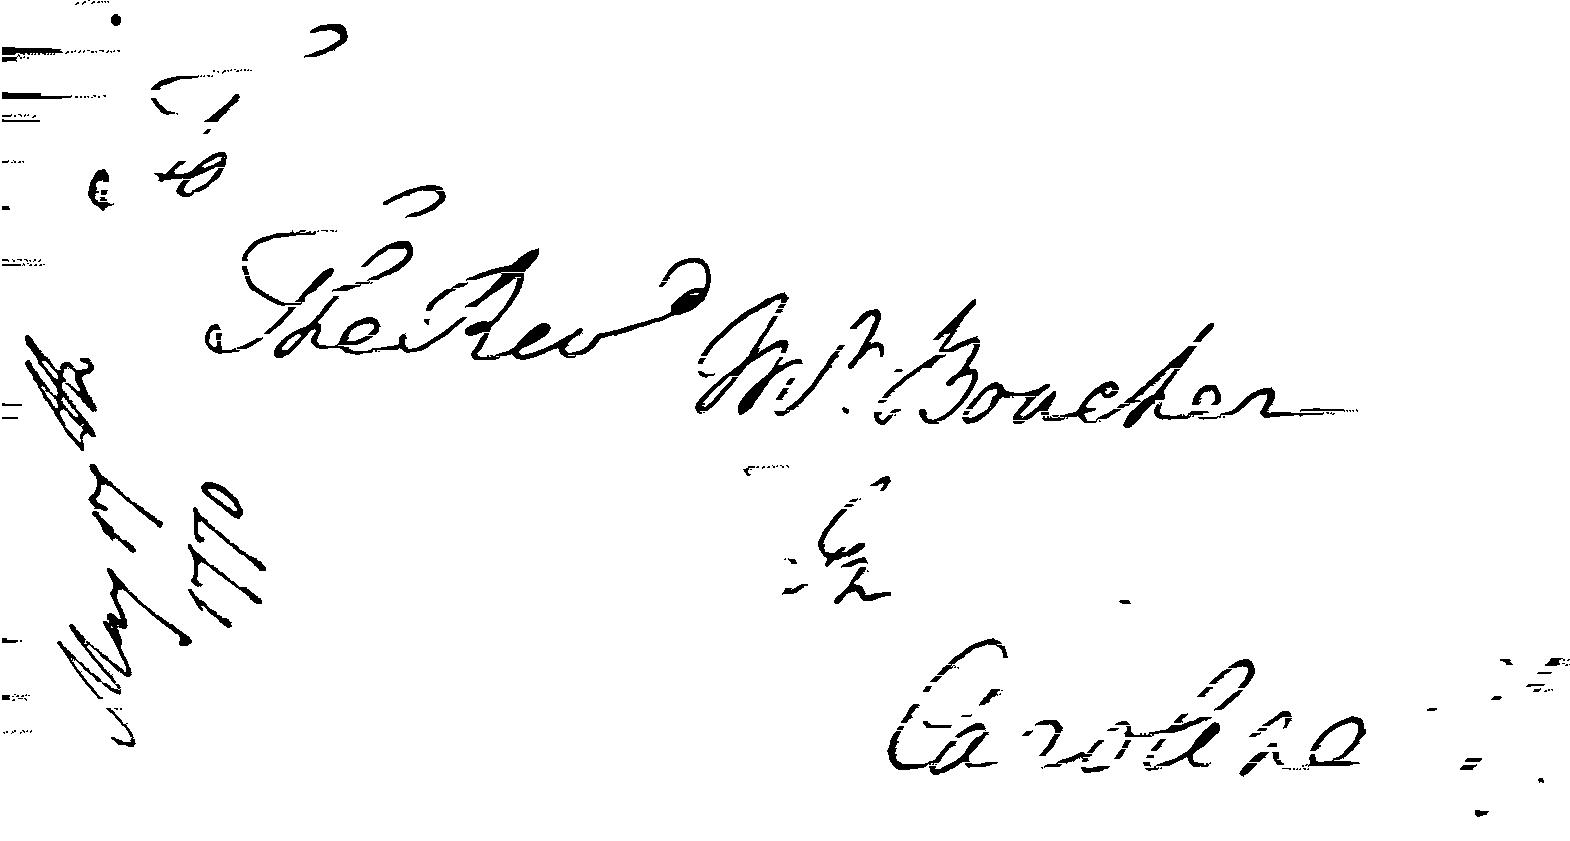 To
The Revd Mr. Boucher
In
Caroline
May 17th
1770